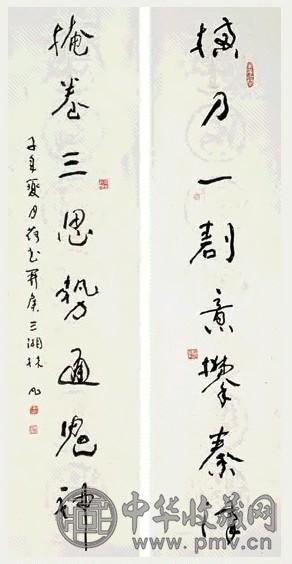 操刀一割意攀秦汉
掩卷三思势通鬼神
夏月
三湘林凡
中华收藏网
www.pmv.cn